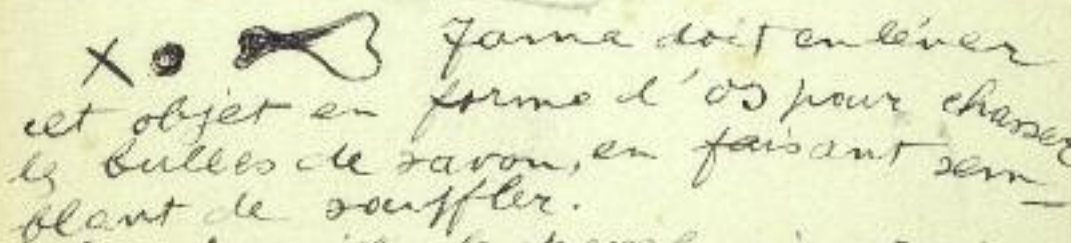 X Jama doit enlever
cet objet en forme d'os pour chasser
les bulles de savon, en faisant sem-
blant de souffler.